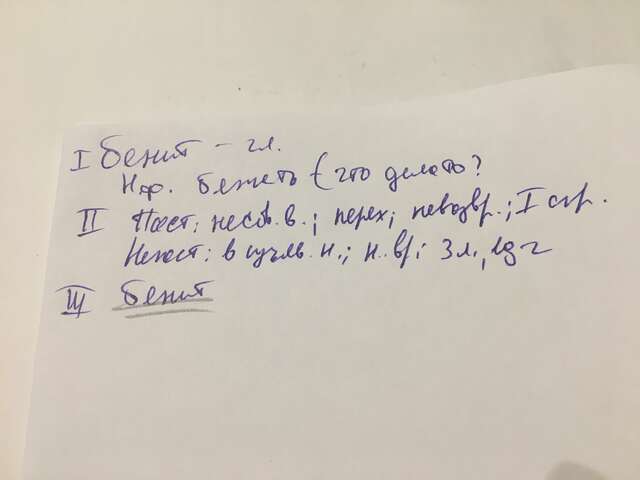 I Бежит – гл.
Н.ф. бежать (что делать?
II Пост: несов. в.; перех; невозвр.; I спр.
Непост: в изъяв. н.; н. вр; 3 л., ед ч
III бежит